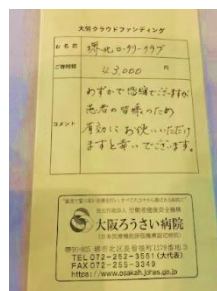 大労クラウドファンディング
お名前
堺北ロータリークラブ
ご寄附額
43,000 円
コメント
わずかで恐縮ですが
患者の皆様のため
有効にお使いいただけ
ますと幸いでございます。
独立行政法人 労働者健康安全機構
大阪ろうさい病院
(日本医療機能評価機構認定病院)
堺市北区長曽根町1179番地3
TEL 072-252-3561(大代表)
FAX 072-255-3349
https://www.osakah.johas.go.jp